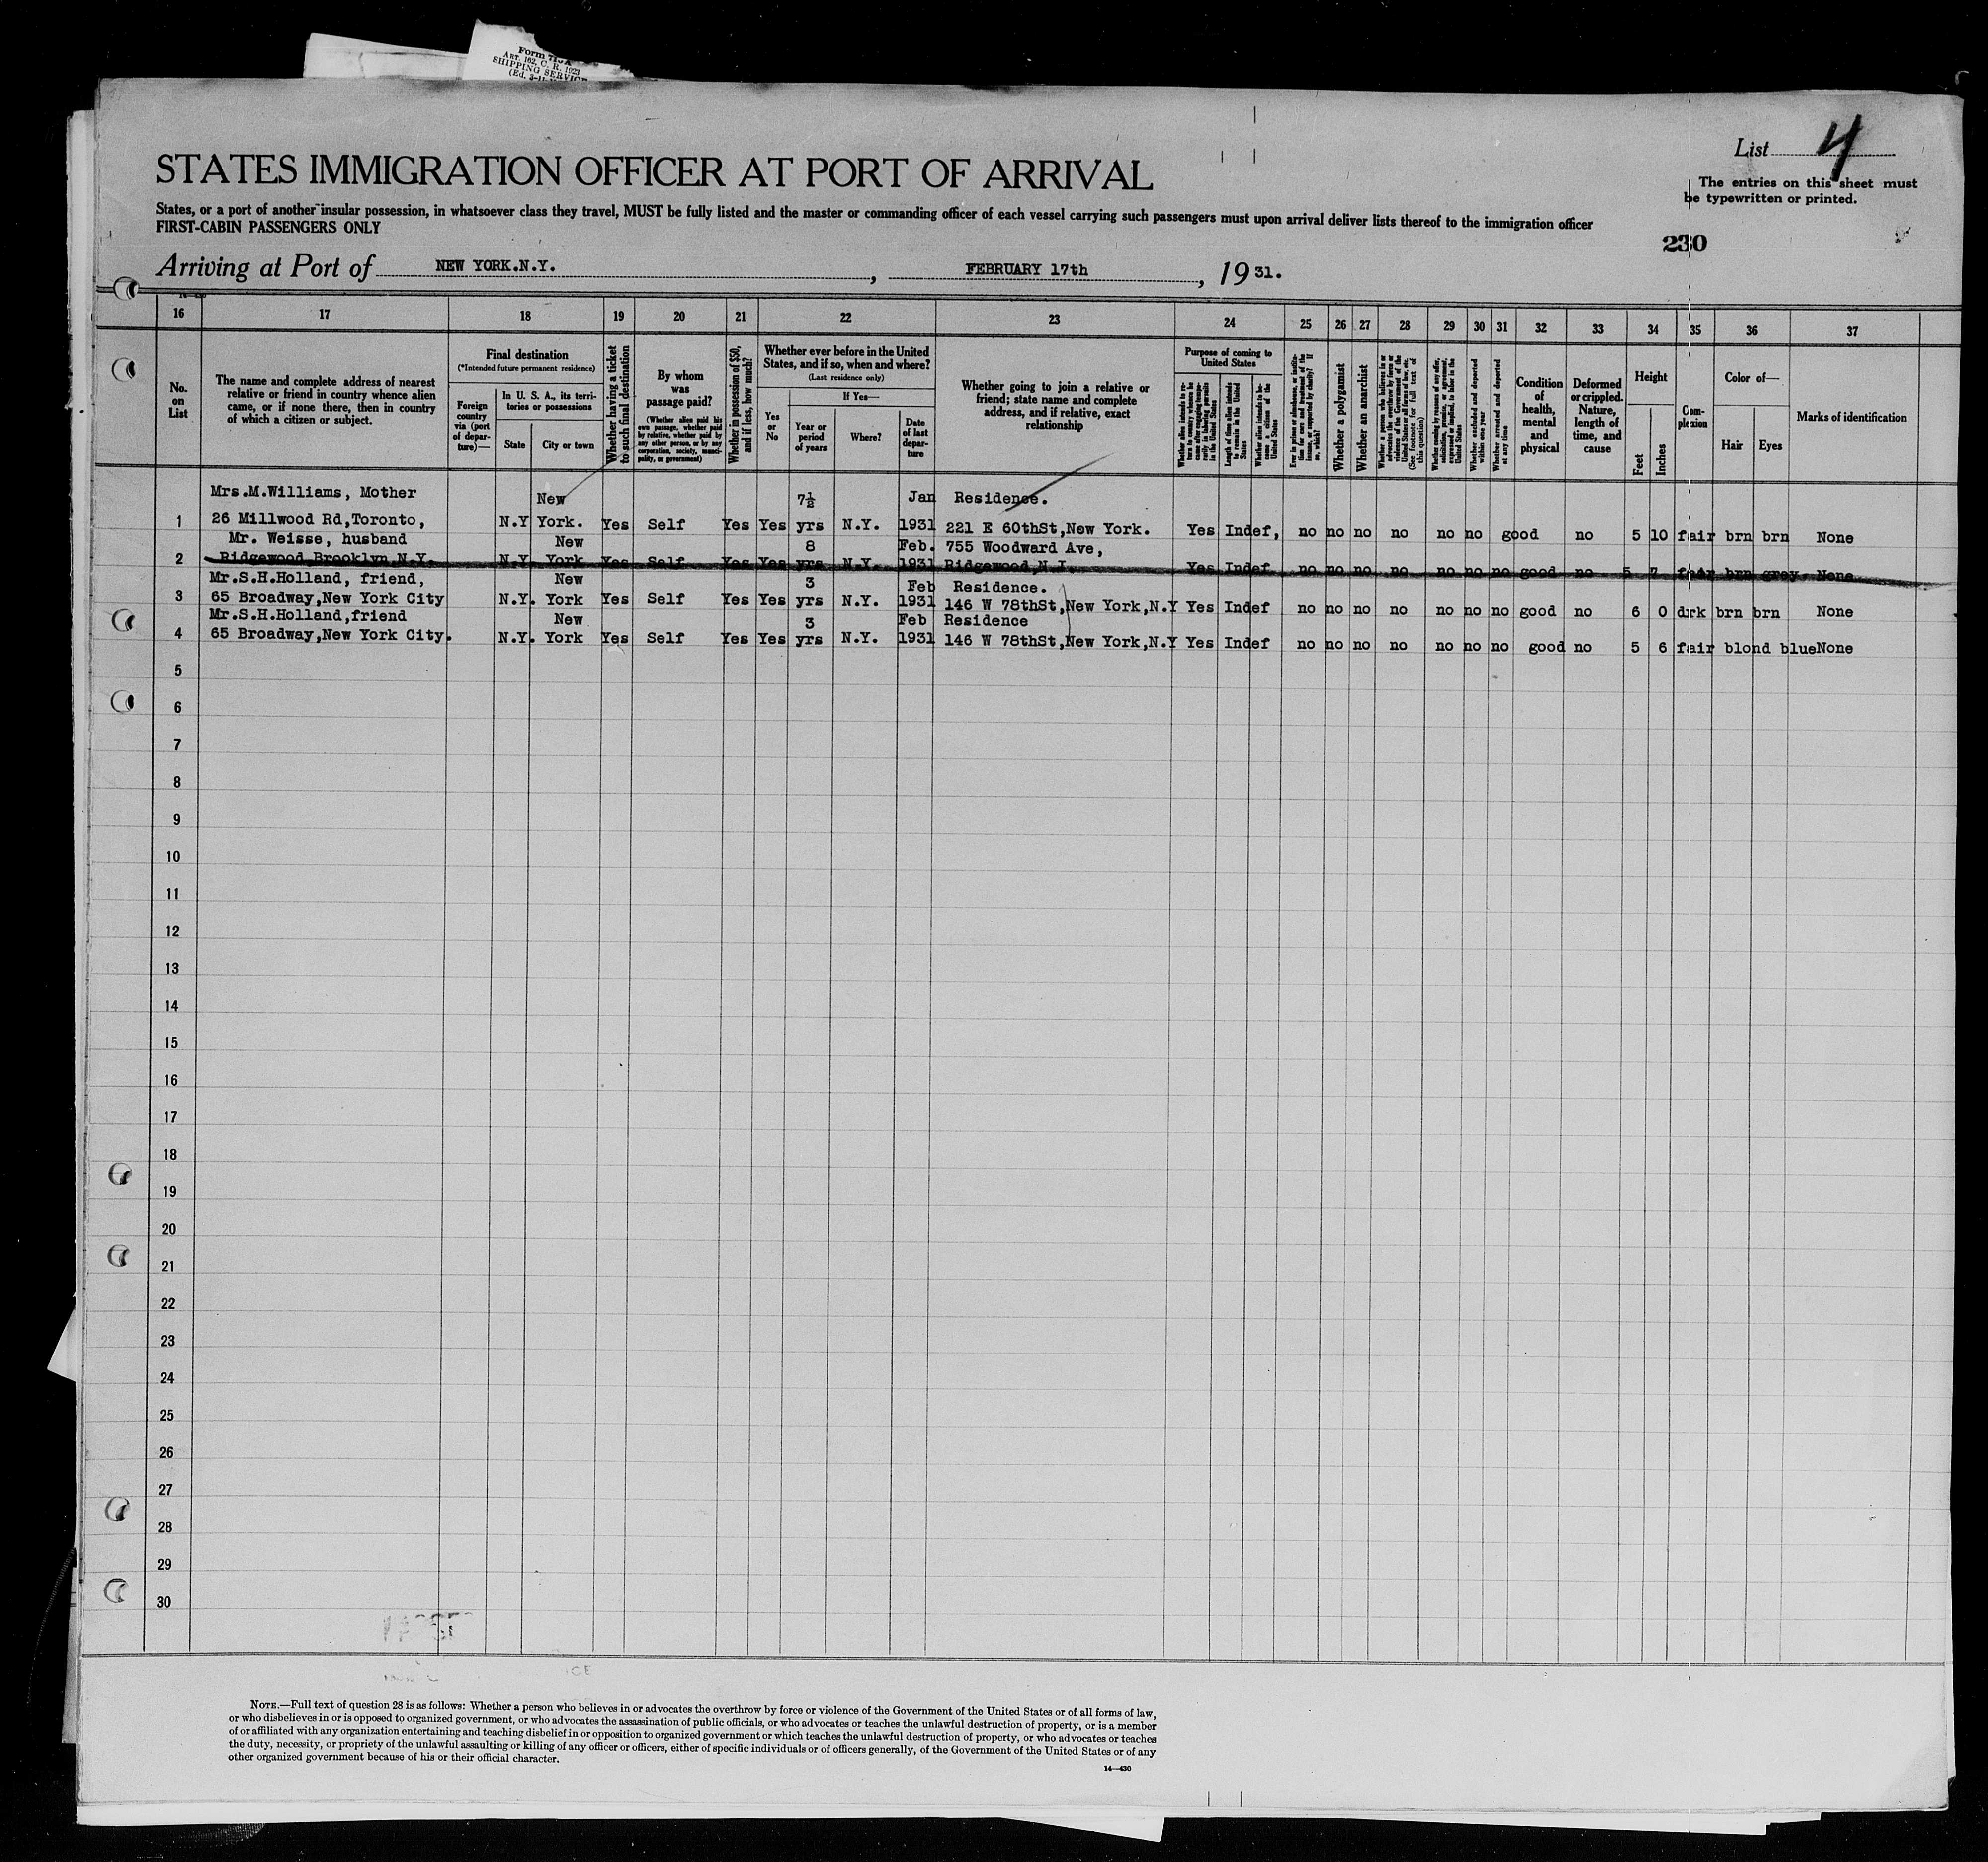 Form 
ART. 162, C. R. 1923
SHIPPING SERVICE
List 4
STATES IMMIGRATION OFFICER AT PORT OF ARRIVAL
The entries on this sheet must
be typewritten or printed.
States, or a port of another insular possession, in whatsoever class they travel, MUST be fully listed and the master or commanding officer of each vessel carrying such passengers must upon arrival deliver lists thereof to the immigration officer
FIRST-CABIN PASSENGERS ONLY
230
Arriving at Port of NEW YORK.N.Y. , FEBRUARY 17th , 1931.
16 17 18 19 20 21 22 23 24 25 26 27 28 29 30 31 32 33 34 35 36 37
No. on List
The name and complete address of nearest
relative or friend in country whence alien
came, or if none there, then in country
of which a citizen or subject.
Final destination
(*Intended future permanent residence)
Foreign
country
via (port
of depar-
ture)—
In U. S. A., its terri-
tories or possessions
State City or town
Whether having a ticket
to such final destination
By whom
was
passage paid?
(Whether alien paid his
own passage, whether paid
by relative, whether paid by
any other person, or by any
corporation, society, munici-
pality, or government)
Whether in possession of $50,
and if less, how much?
Whether ever before in the United
States, and if so, when and where?
(Last residence only)
Yes
or
No
If Yes—
Year or
period
of years
Where?
Date
of last
depar-
ture
Whether going to join a relative or
friend; state name and complete
address, and if relative, exact
relationship
Purpose of coming to
United States
Length of time alien intends
to remain in the United
States
Whether alien intends to be-
come a citizen of the
United States
Whether a polygamist
Whether an anarchist
(See footnote for full text of
this question)
Whether arrested and deported
at any time
Condition
of
health,
mental
and
physical
Deformed
or crippled.
Nature,
length of
time, and
cause
Height
Feet Inches
Com-
plexion
Color of—
Hair Eyes
Marks of identification
Mrs.M.Williams, Mother New 7½ Jan Residence.
1 26 Millwood Rd,Toronto, N.Y York. Yes Self Yes Yes yrs N.Y. 1931 221 E 60thSt,New York. Yes Indef, no no no no no no good no 5 10 fair brn brn None
Mr. Weisse, husband New 8 Feb. 755 Woodward Ave,
2 Ridgewood,Brooklyn,N.Y. N.Y York Yes Self Yes Yes yrs N.Y. 1931 Ridgewood,N.I. Yes Indef no no no no no no no good no 5 7 fair brn grey None
Mr.S.H.Holland, friend, New 3 Feb Residence.
3 65 Broadway,New York City N.Y. York Yes Self Yes Yes yrs N.Y. 1931 146 W 78thSt,New York,N.Y Yes Indef no no no no no no no good no 6 0 drk brn brn None
Mr.S.H.Holland,friend New 3 Feb Residence
4 65 Broadway,New York City. N.Y. York Yes Self Yes Yes yrs N.Y. 1931 146 W 78thSt,New York,N.Y Yes Indef no no no no no no no good no 5 6 fair blond blue None
5
6
7
8
9
10
11
12
13
14
15
16
17
18
19
20
21
22
23
24
25
26
27
28
29
30
NOTE.—Full text of question 28 is as follows: Whether a person who believes in or advocates the overthrow by force or violence of the Government of the United States or of all forms of law,
or who disbelieves in or is opposed to organized government, or who advocates the assassination of public officials, or who advocates or teaches the unlawful destruction of property, or is a member
of or affiliated with any organization entertaining and teaching disbelief in or opposition to organized government or which teaches the unlawful destruction of property, or who advocates or teaches
the duty, necessity, or propriety of the unlawful assaulting or killing of any officer or officers, either of specific individuals or of officers generally, of the Government of the United States or of any
other organized government because of his or their official character.
14—430